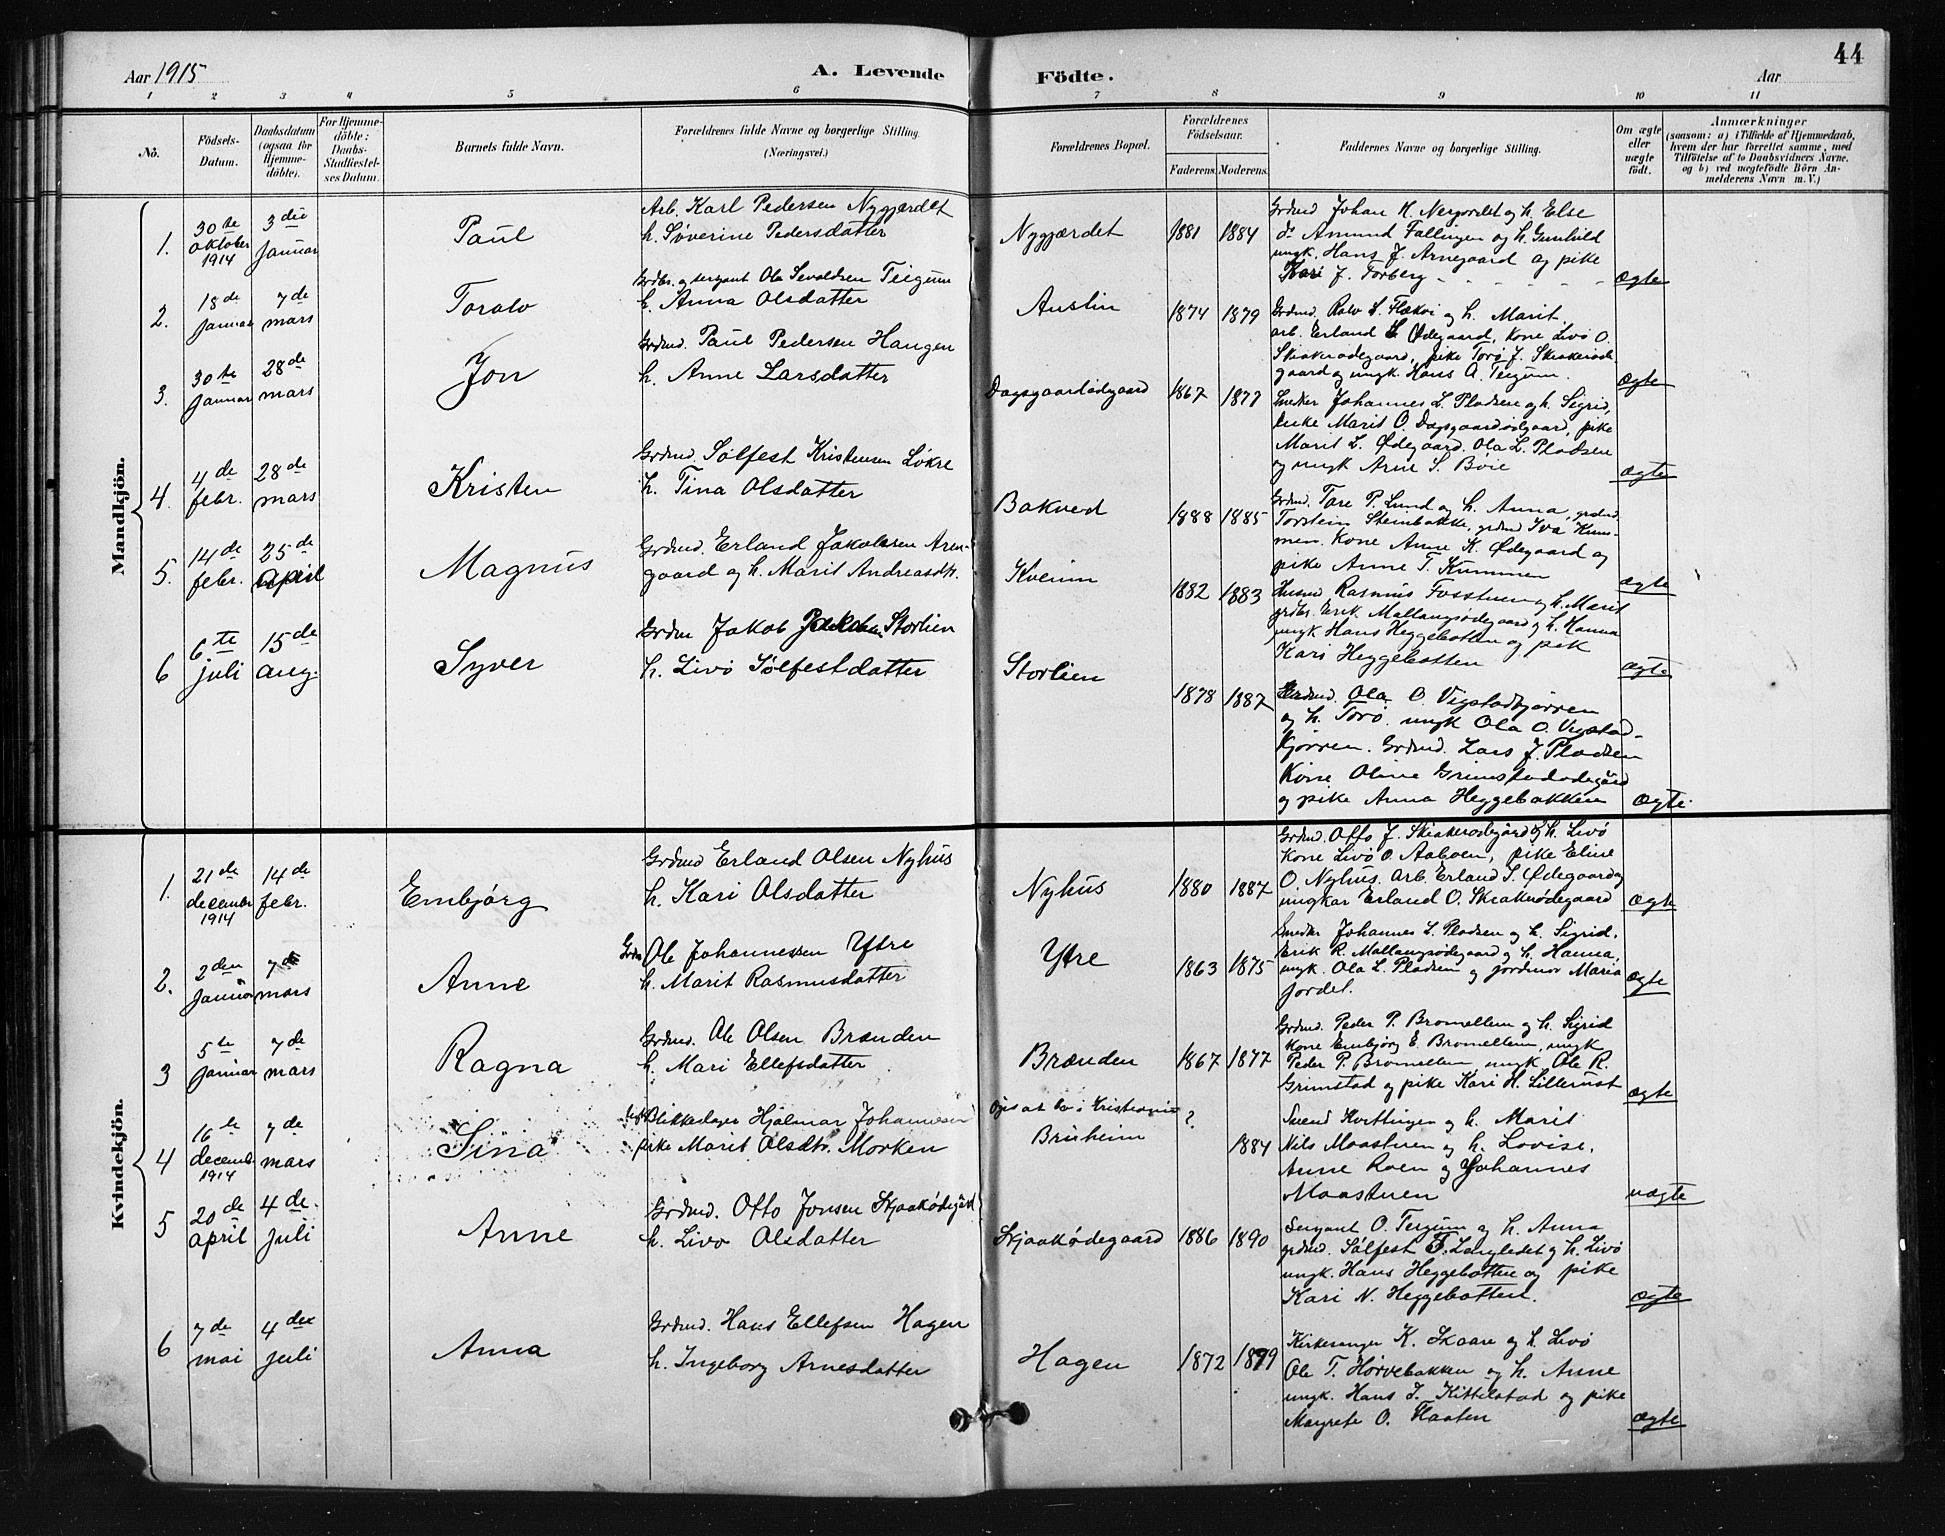 44
Aar 1915
A. Levende Födte.
Aar
1 2 3 4 5 6 7 8 9 10 11
Nö.
Födsels-Datum.
Daabsdatum (ogsaa for Hjemme-döbte).
For Hjemme-döbte: Daabs-Stadfæstel-ses Datum.
Barnets fulde Navn.
Forældrenes fulde Navne og borgerlige Stilling. (Næringsvei.)
Forældrenes Bopæl.
Forældrenes Födselsaar.
Faderens. Moderens.
Faddernes Navne og borgerlige Stilling.
Om ægte eller uægte födt.
Anmærkninger
(saasom: a) i Tilfælde af Hjemmedaab, hvem der har forrettet samme, med Tilföielse af to Daabsvidners Navne, og b) ved uægtefödte Börn An-melderens Navn m. V.)
Mandkjön.
1. 30te oktober 1914 3die januar
Paul
Arb. Karl Pedersen Nygjærdet
h. Søverine Pedersdatter
Nygjærdet 1881 1884
Grdmd Johan K. Nergordet og h. Else
do Amund Fallingen og h. Gunhild
ungk. Hans J. Arnegaard og pike
Kari J. Forberg
ægte
2. 18de januar 7de mars
Toralv
Grdbr. og sergant Ola Sevaldsen Teigum
h. Anna Olsdatter
Austin 1874 1879
Grdmd. Ralv S. Flækøi og h. Marit,
arb. Erland L. Ødegaard, kone Livø O.
Skiakrødegaard, pike Torø J. Skiakerød-
gaard og ungk. Hans A. Teigum.
ægte
3. 30te januar 28de mars
Jon
Grdmd. Paul Pedersen Haugen
h. Anne Larsdatter
Dagsgaardødgaard 1867 1877
Snedker Johannes L. Pladsen og h. Sigrid,
enke Marit O. Dagsgaardødgaard, pike
Marit L. Ødegaard. Ola L. Pladsen
og ungk Arne S. Bøie
ægte
4. 4de febr. 28de mars
Kristen
Grdmd. Sølfest Kristensen Løkre
h. Tina Olsdatter
Bakved 1888 1885
Grdmd. Tore P. Lund og h. Anna, grdmd.
Torstein Steinbakke, grdmd Iva Kum-
men. Kone Anne K. Ødegaard og
pike Anne T. Kummen
ægte
5. 14de febr. 25de april
Magnus
Grdmd. Erland Jakobsen Aren-
gaard og h. Marit Andreasdtr.
Kveum 1882 1883
Husmd Rasmus Fosstuen og h. Marit
grdbr. Erik Mallangsødegaard og h. Hanna
ungk Hans Heggebotten og pik
Kari Heggebotten
ægte
6 6te juli 15de aug.
Syver
Grdm Jakob Storlien
h. Livø Sølfestdatter
Storlien 1878 1887
Grdmd. Ola O. Vigstadkjørren
og h. Torø. ungk Ola O. Vigstad-
kjørren. Grdmd. Lars J. Pladsen
Kone Oline Grimstadødegård
og pike Anna Heggebakken
ægte.
Kvindekjön.
1. 21de decembr 1914 14de febr.
Embjørg
Grdmd Erland Olsen Nyhus
h. Kari Olsdatter
Nyhus 1880 1887
Grdmd. Otto J. Skiakerødegård og h. Livø
Kone Livø O. Aaboen, pike Eline
O. Nyhus. Arb. Erland S. Ødegaard og
ungkar Erland O. Skiakerødegaard
ægte
2. 2den januar 7de mars
Anne
Grdm Ole Johannessen Ytre
h. Marit Rasmusdatter
Ytre 1863 1875
Snedker Johannes L. Pladsen og h. Sigrid.
Erik R. Mallangsødegaard og h. Hanna,
ungk. Ola L. Pladsen og jordmor Maria
Jordet.
ægte
3 5te januar 7de mars
Ragna
Grdmd. Ole Olsen Brænden
h. Mari Ellefsdatter
Brænden 1867 1877
Grdmd. Peder P. Bromellem og h. Sigrid
kone Embjørg E. Bromellem, ungk
Peder P. Bromellem ungk. Ole R.
Grimstad og pike Kari H. Lillerust
ægte
4 16de decemb. 1914 7de mars
Sina
Blikkeslager Hjalmar Johannesen
pike Marit Olsdtr. Morken
Opgis at bo i Kristiania
Bruheim ? 1884
Svend Kvittingen og h. Marit
Nils Maastuen og h. Lovise.
Anne Roen og Johannes
Maastuen
uægte
5 20de april 4de juli
Anne
Grdmd. Otto Jonsen Skjaakødegård
h. Livø Olsdatter
Skjaakødegaard 1886 1890
Sergant O. Teigum og h. Anna
grdmd. Sølfest T. Langledet og h. Livø
ungk. Hans Heggebotten og pike
Kari N. Heggebotten.
ægte
6 7de mai 4de juli
Anna
Grdmd. Hans Ellefsen Hagen
h. Ingeborg Arnesdatter
Hagen 1872 1879
Kirkesanger K. Skaare og h. Livø
Ole T. Hørvebakken og h. Anne
ungk. Hans J. Kittelstad og pike
Margrete O. Flaaten
ægte